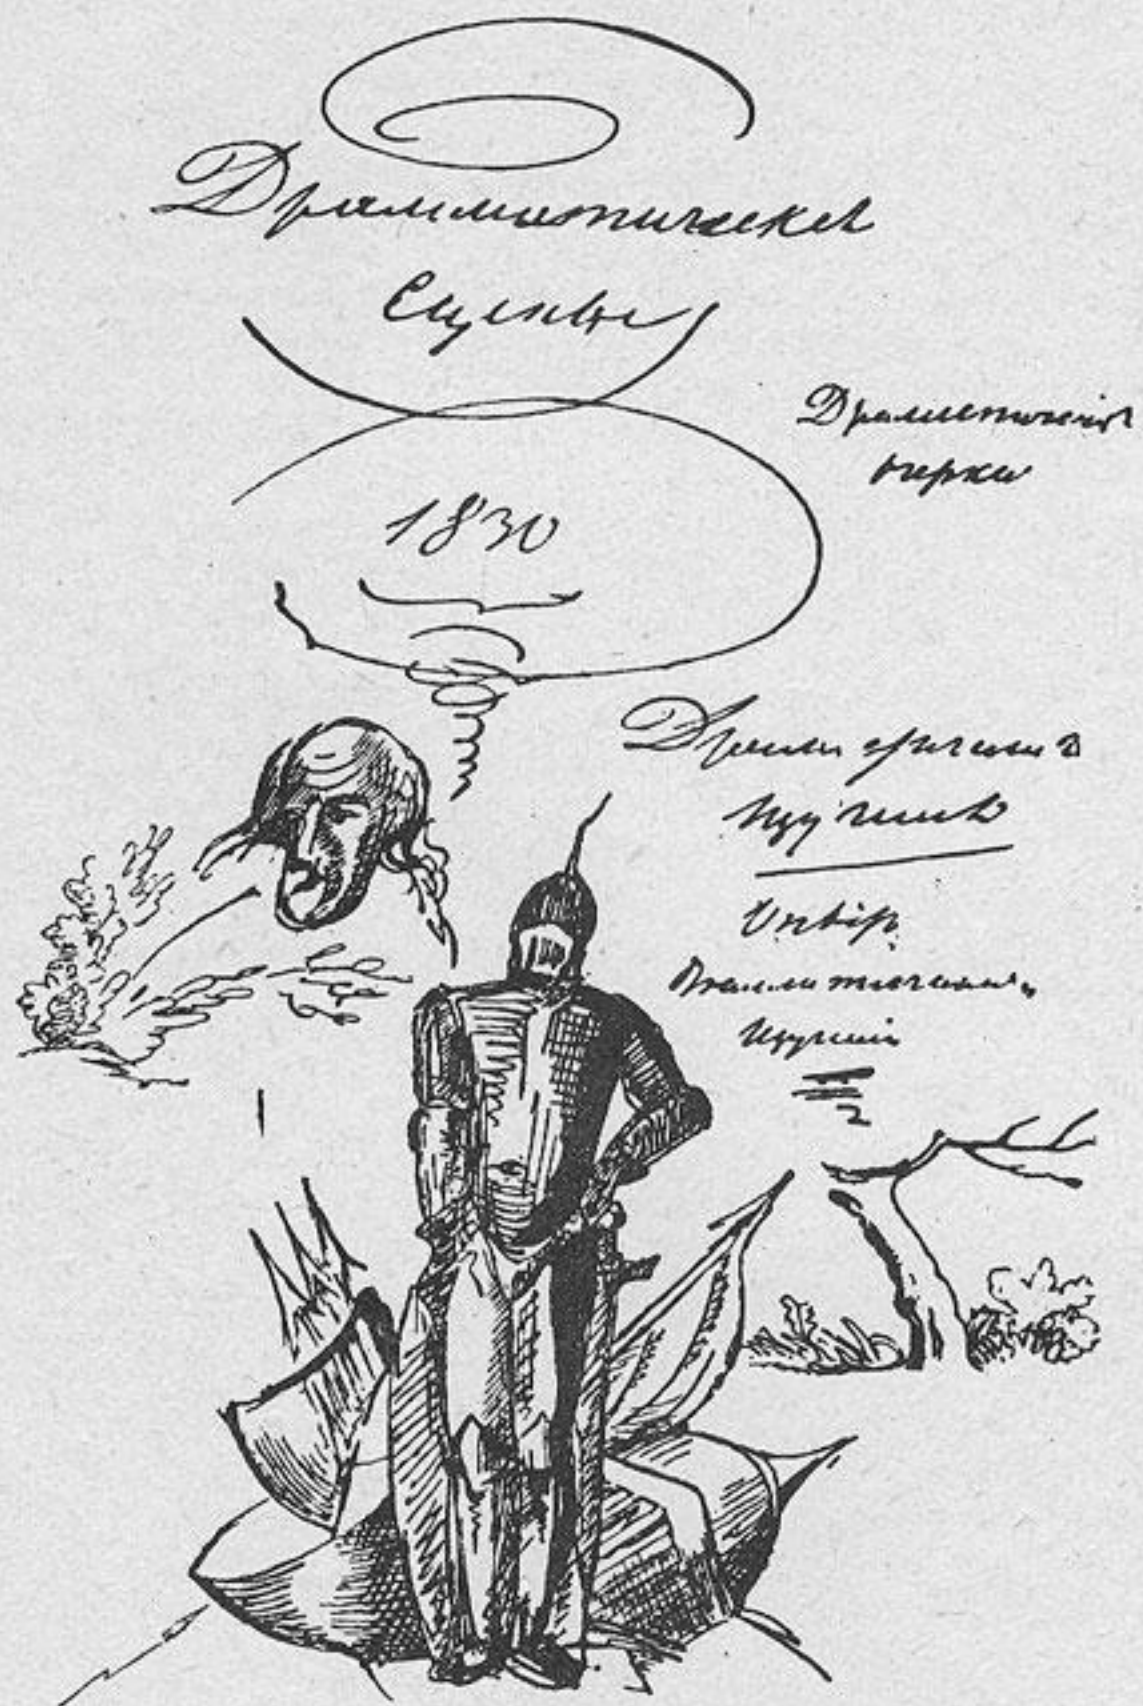 Драмматическія
Сцены
1830
Драмматическія
очерки
Драмматическія
Изученія
Опытъ
Драмматическихъ
Изученій